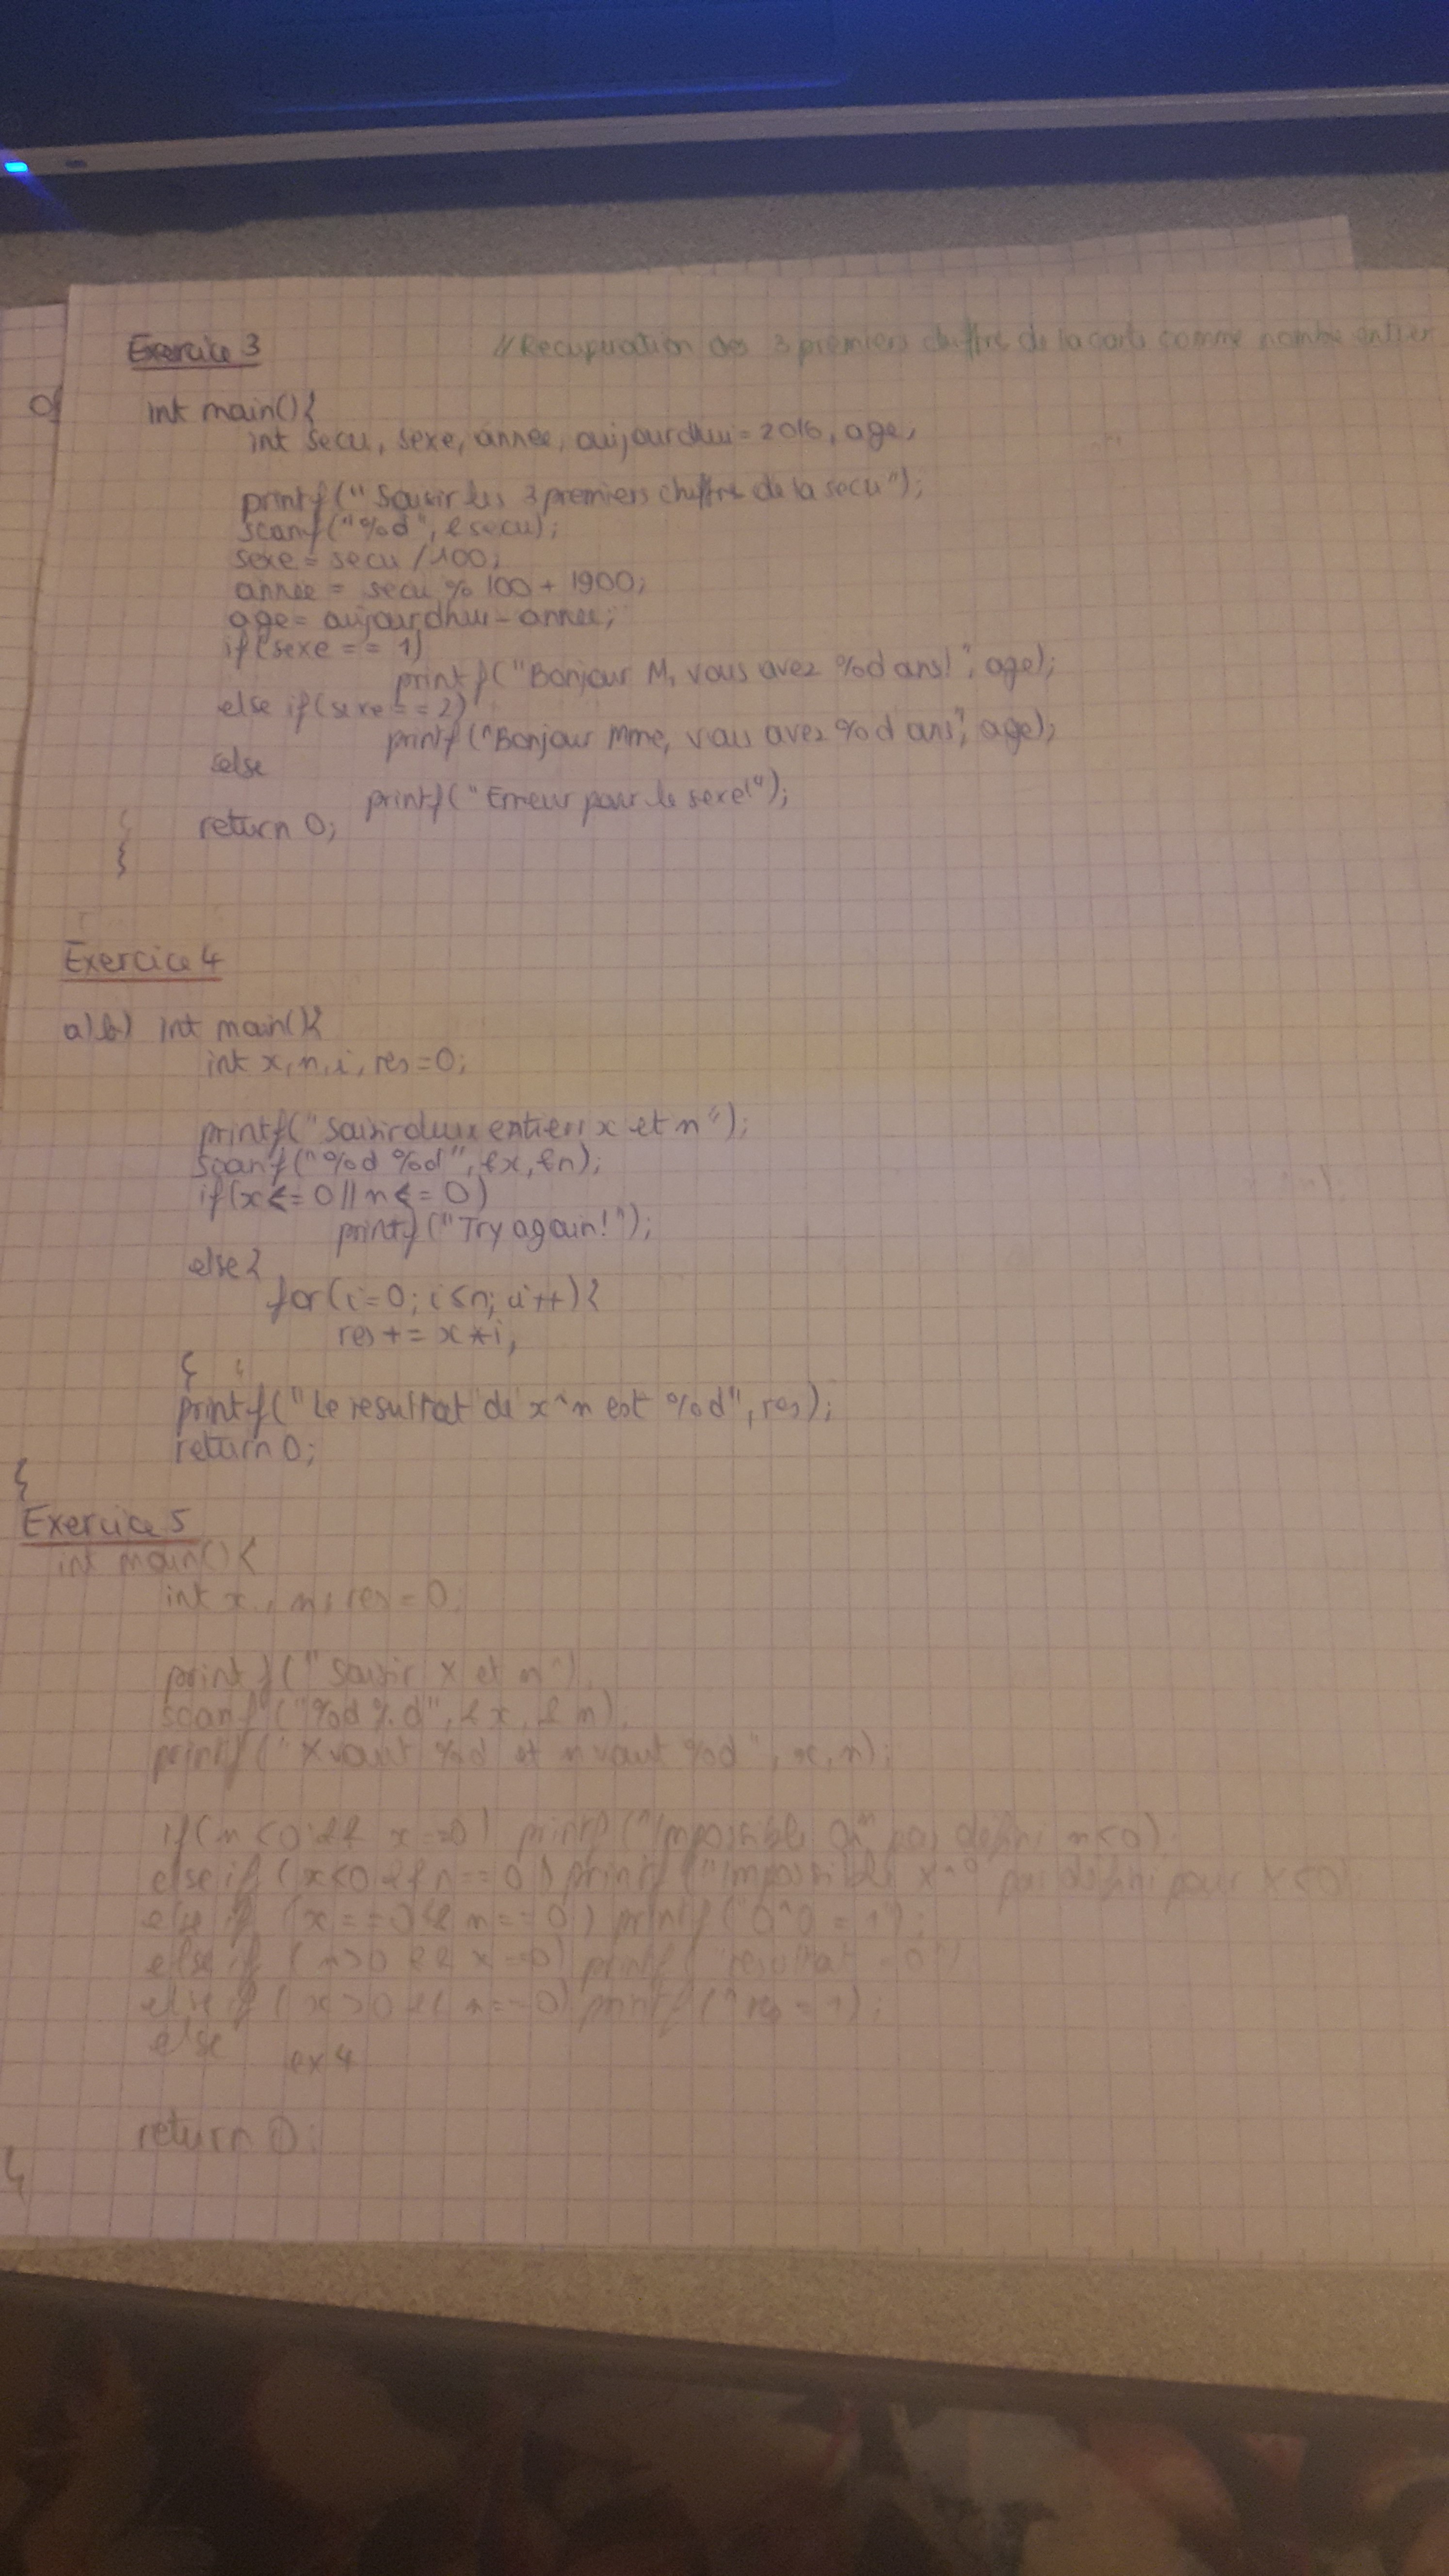 Exercice 3
//Recuperation des 3 premiers chiffre de la carte comme nombre entier
int main(){
int secu, sexe, annee, aujourdhui = 2016, age;
printf("Saisir les 3 premiers chiffre de la secu");
scanf("%d", &secu);
sexe = secu / 100;
annee = secu % 100 + 1900;
age = aujourdhui - annee;
if(sexe == 1)
printf("Bonjour M, vous avez %d ans!", age);
else if(sexe == 2)
printf("Bonjour Mme, vous avez %d ans", age);
else
printf("Erreur pour le sexe!");
return 0;
}
Exercice 4
a)b) int main(){
int x, n, i, res = 0;
printf("Saisir deux entiers x et n");
scanf("%d %d", &x, &n);
if(x <= 0 || n <= 0)
printf("Try again!");
else{
for(i=0; i<n; i++){
res += x*i;
}
printf("Le resultat de x^n est %d", res);
return 0;
}
Exercice 5
int main(){
int x, n, res = 0;
printf("Saisir x et n");
scanf("%d %d", &x, &n);
printf("X vaut %d et n vaut %d", x, n);
if(n<0 && x==0) printf("Impossible 0^n pas defini n<0)
else if (x<0 && n==0) printf("Impossible x^0 pas défini pour x<0)
else if (x==0 && n==0) printf("0^0 = 1");
else if (n>0 && x==0) printf("resultat = 0")
else if (x>0 && n==0) printf("res = 1);
else ex 4
return 0;
}